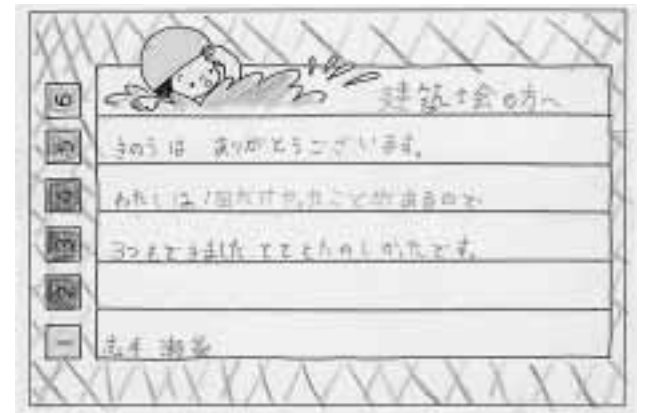 建築士会の方へ
きのうは ありがとうございます。
わたしは 1回だけやったことがあるので
3つもできました とてもたのしかったです。
6
5
4
3
2
1